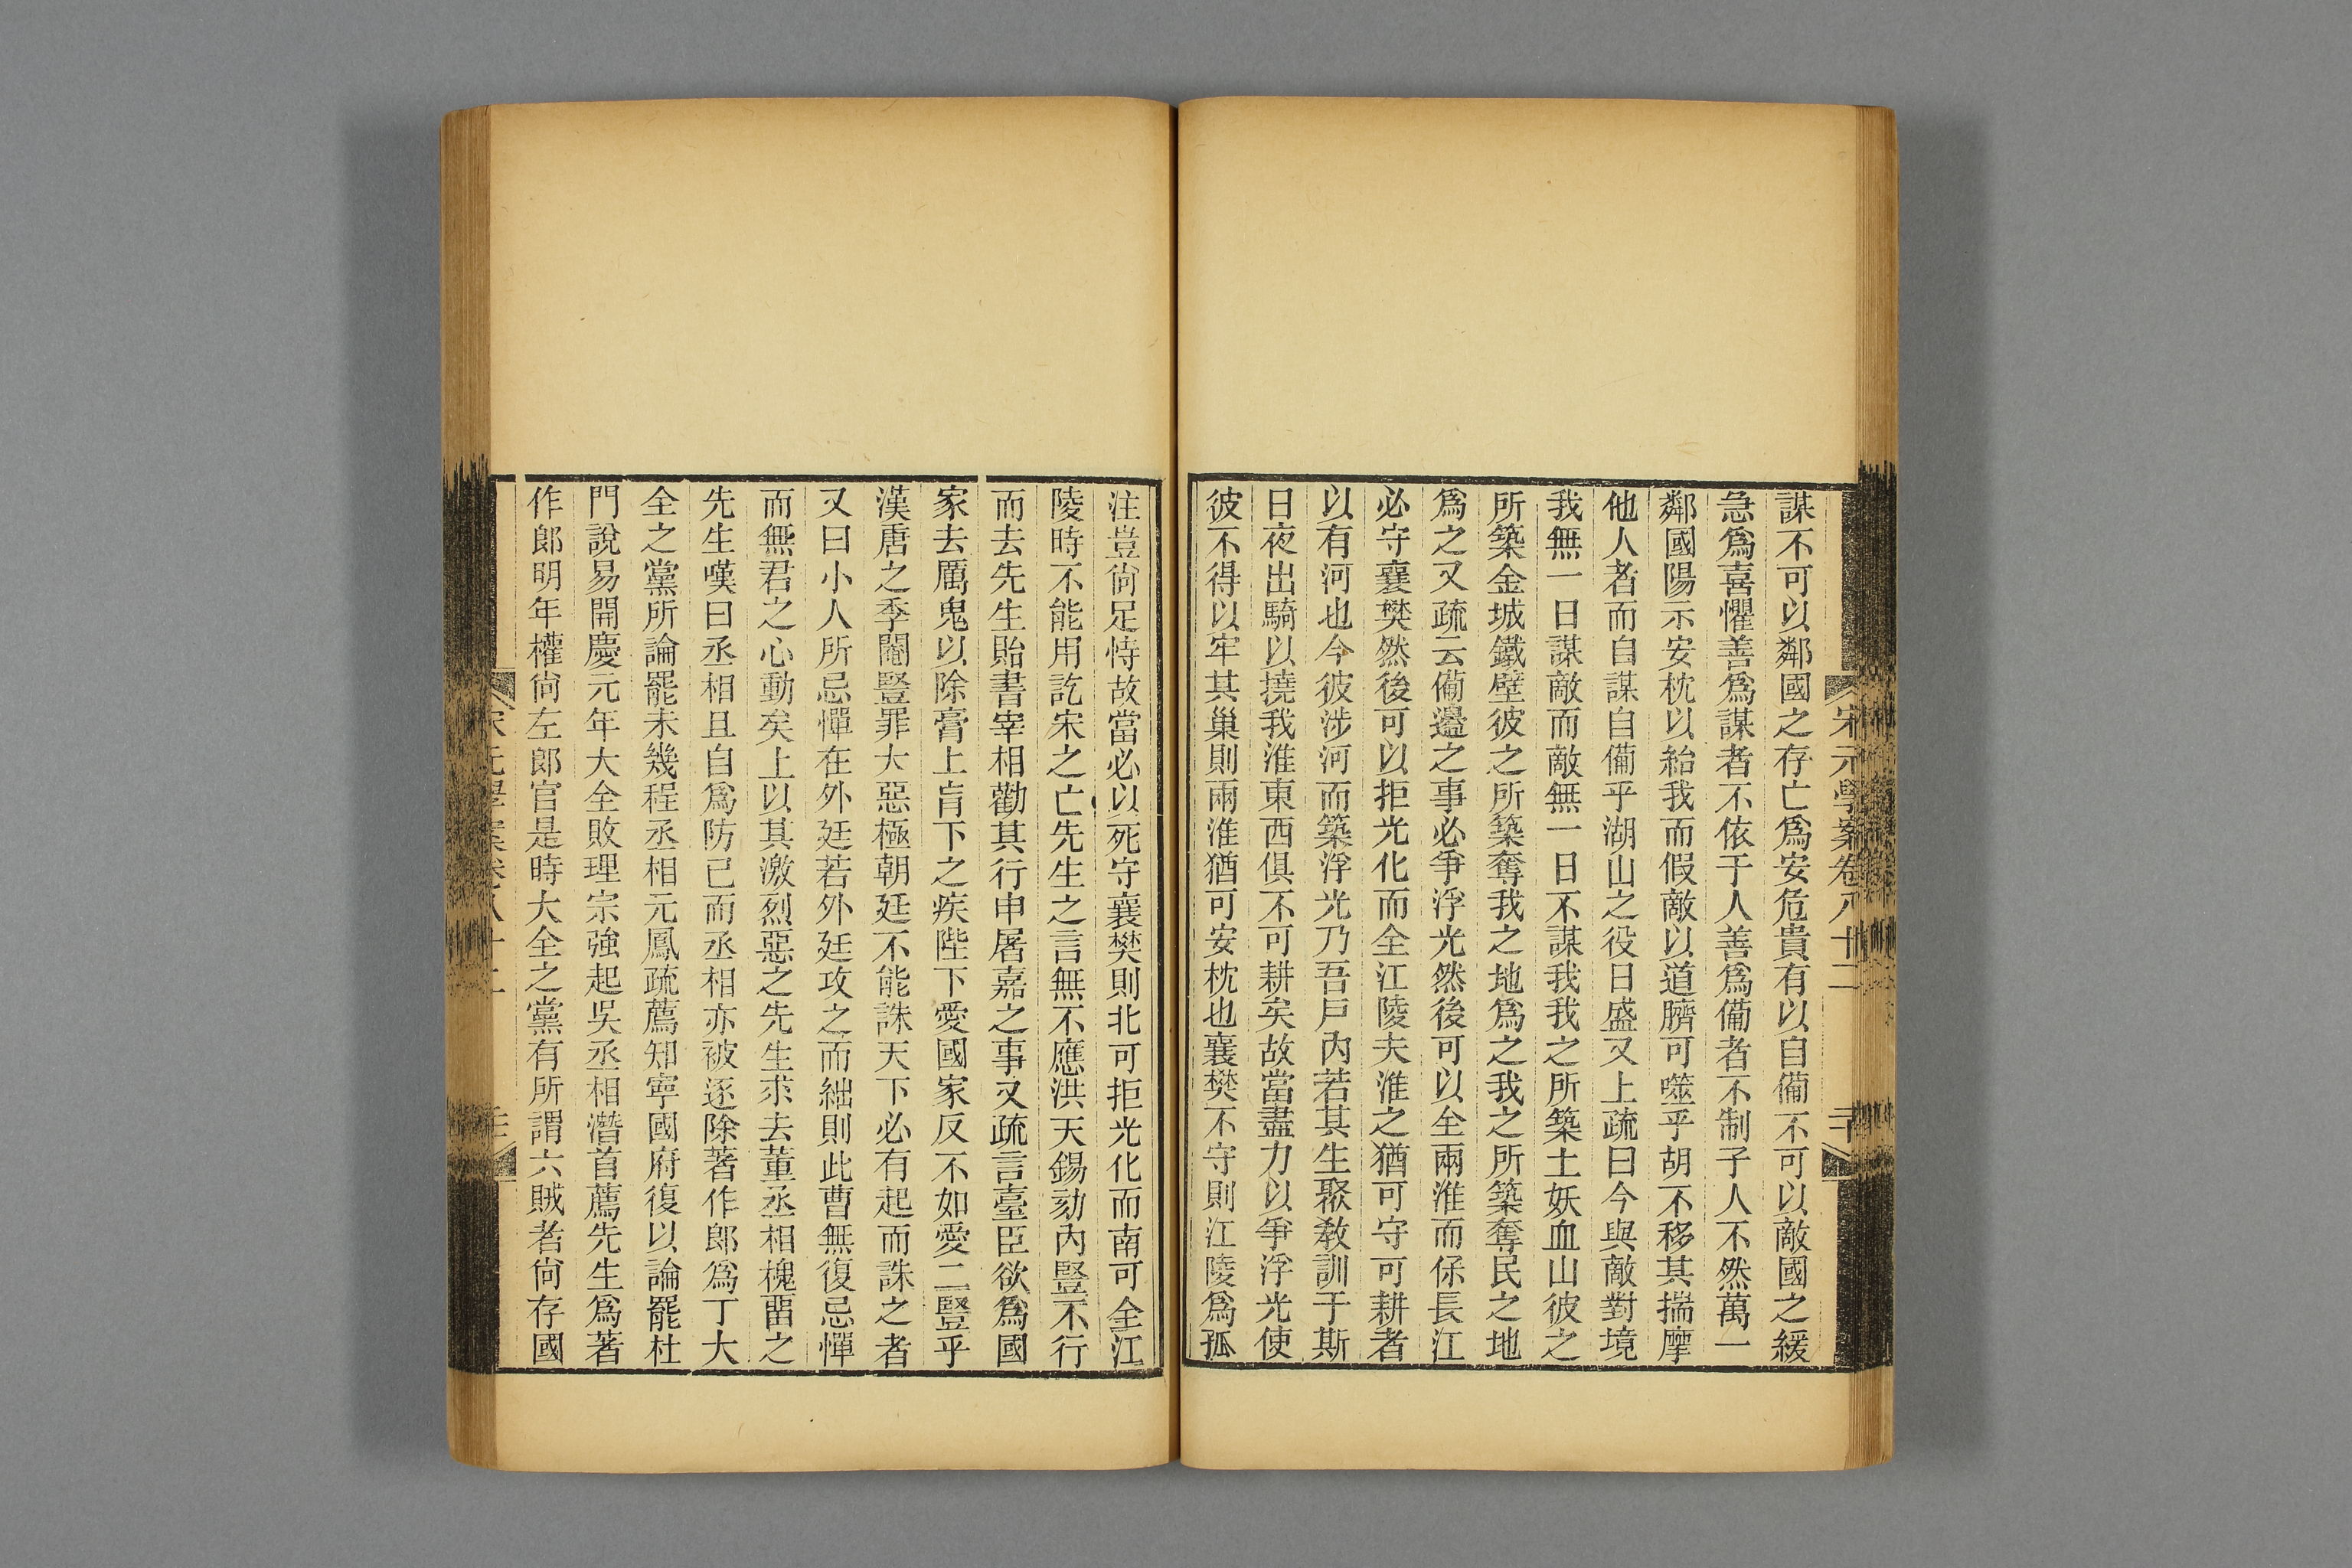 宋元學案卷八十二
謀不可以鄰國之存亡爲安危貴有以自備不可以敵國之緩
急爲喜懼善爲謀者不依于人善爲備者不制于人不然萬一
鄰國陽示安枕以紿我而假敵以道臍可噬乎胡不移其揣摩
他人者而自謀自備乎湖山之役日盛又上疏曰今與敵對境
我無一日謀敵而敵無一日不謀我我之所築土妖血山彼之
所築金城鐵壁彼之所築奪我之地爲之我之所築奪民之地
爲之又疏云備邊之事必爭浮光然後可以全兩淮而保長江
必守襄樊然後可以拒光化而全江陵夫淮之猶可守可耕者
以有河也今彼涉河而築浮光乃吾戶內若其生聚敎訓于斯
日夜出騎以撓我淮東西俱不可耕矣故當盡力以爭浮光使
彼不得以牢其巢則兩淮猶可安枕也襄樊不守則江陵爲孤
注豈尙足恃故當必以死守襄樊則北可拒光化而南可全江
陵時不能用訖宋之亡先生之言無不應洪天錫劾內豎不行
而去先生貽書宰相勸其行申屠嘉之事又疏言臺臣欲爲國
家去厲鬼以除膏上肓下之疾陛下愛國家反不如愛二豎乎
漢唐之季閹豎罪大惡極朝廷不能誅天下必有起而誅之者
又曰小人所忌憚在外廷若外廷攻之而絀則此曹無復忌憚
而無君之心動矣上以其激烈惡之先生求去董丞相槐畱之
先生嘆曰丞相且自爲防已而丞相亦被逐除著作郞爲丁大
全之黨所論罷未幾程丞相元鳳疏薦知寧國府復以論罷杜
門說易開慶元年大全敗理宗強起吳丞相潛首薦先生爲著
作郞明年權尙左郞官是時大全之黨有所謂六賊者尙存國
宋元學案卷八十二